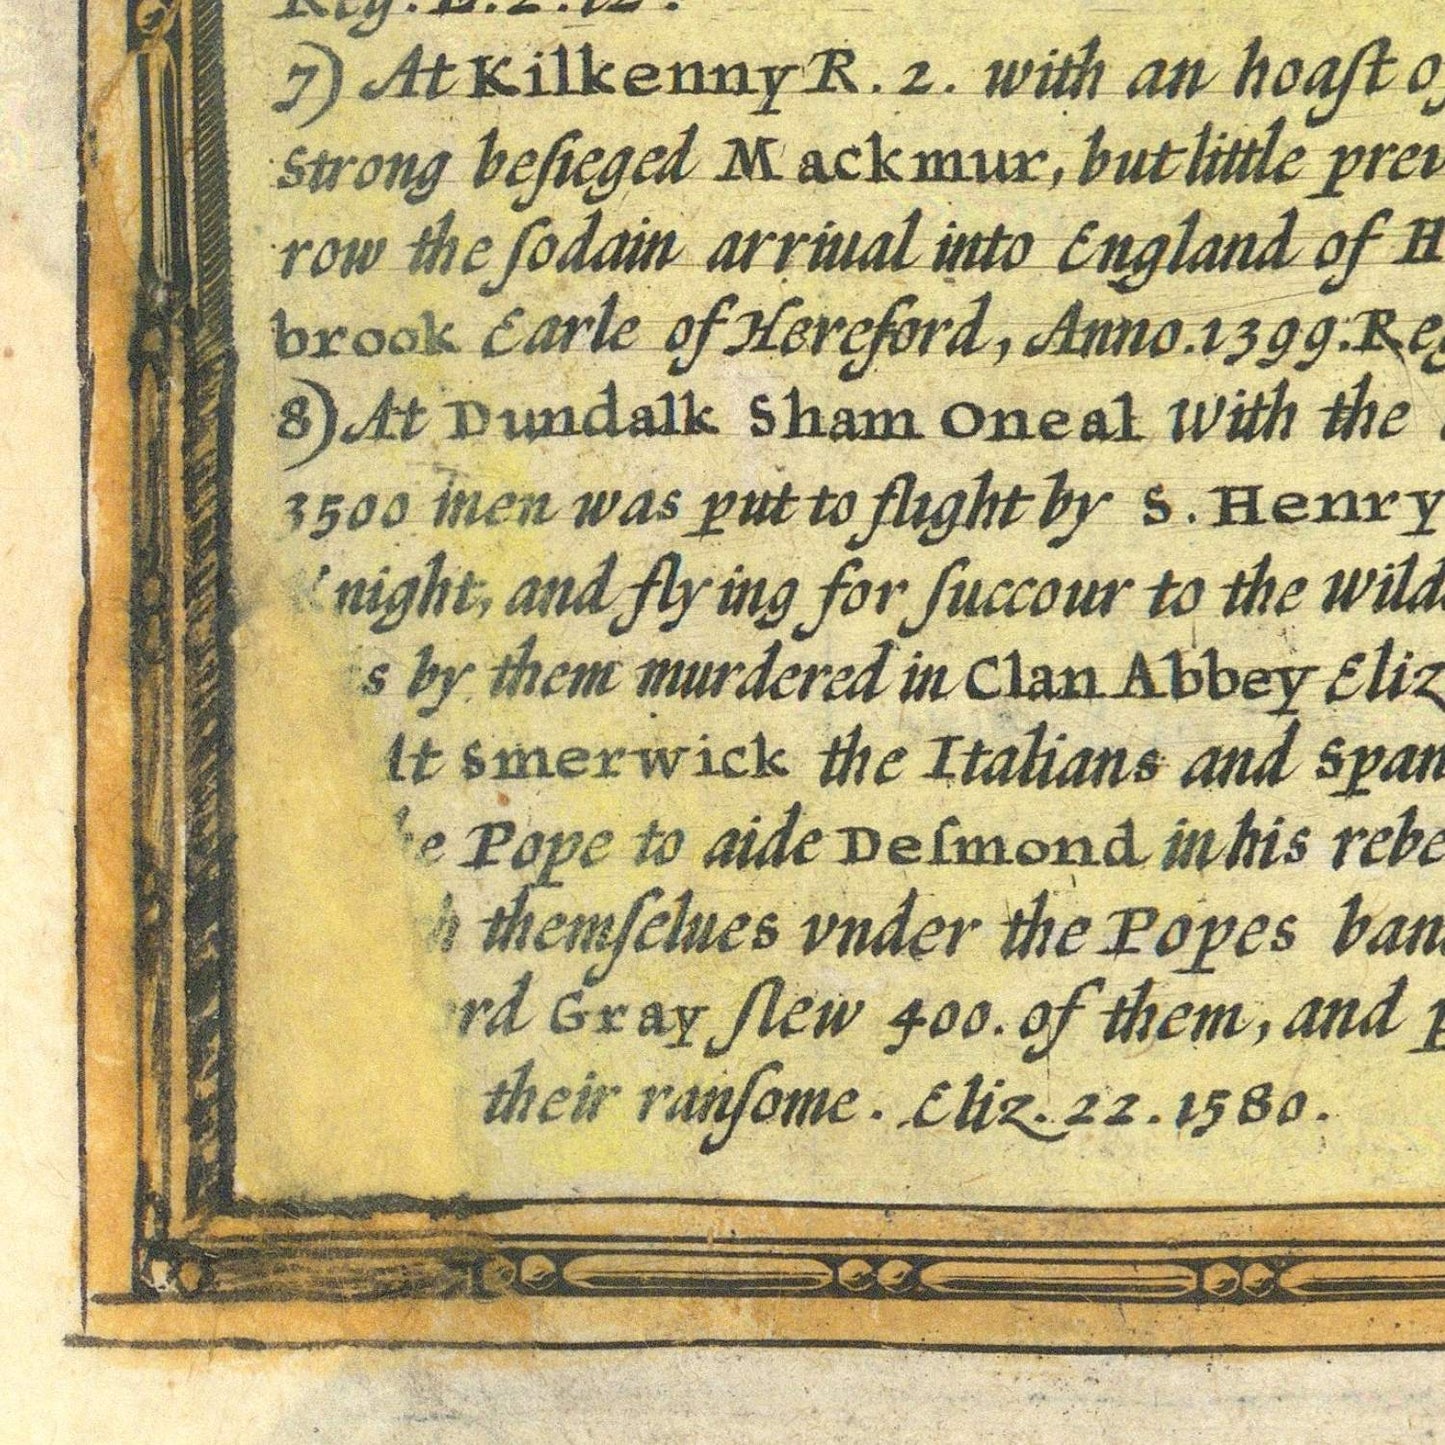 7) At Kilkenny R. 2. with an hoaſt
Strong beſieged Mackmur, but little
row the ſodain arriual into England of
brook Earle of Hereford, Anno. 1399.
8) At Dundalk Sham Oneal With the
3500 men was put to flight by S. Henry
and flying for ſuccour to the
by them murdered in Clan Abbey
Smerwick the Italians and
Pope to aide Deſmond in his
themſelues vnder the Popes
Gray ſlew 400. of them, and
their ranſome. Eliz. 22. 1580.